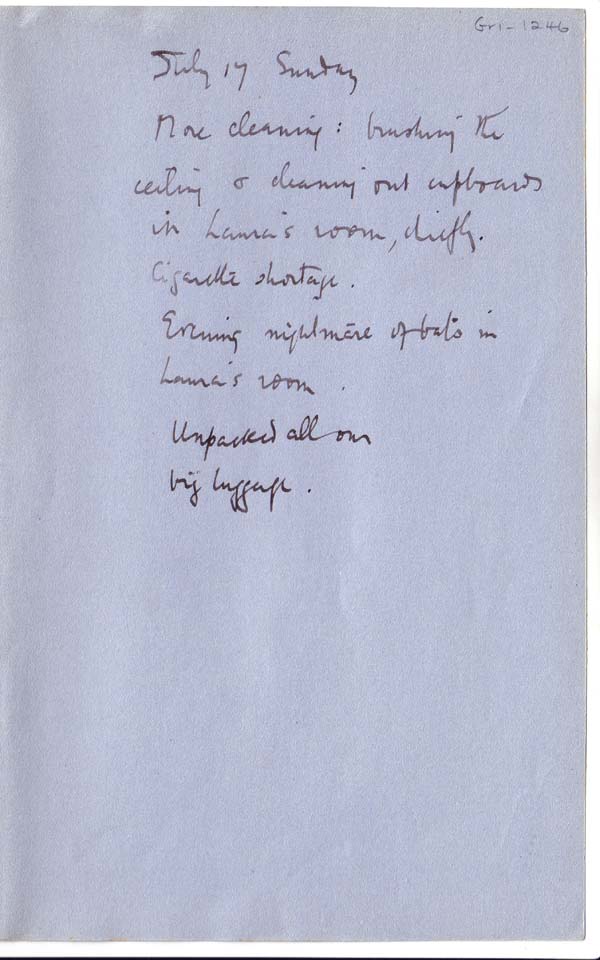 Gr1-1246
July 17 Sunday
More cleaning: brushing the
ceiling & cleaning out cupboards
in Laura's room, chiefly.
Cigarette shortage.
Evening nightmare of bats in
Laura's room.
Unpacked all our
big luggage.